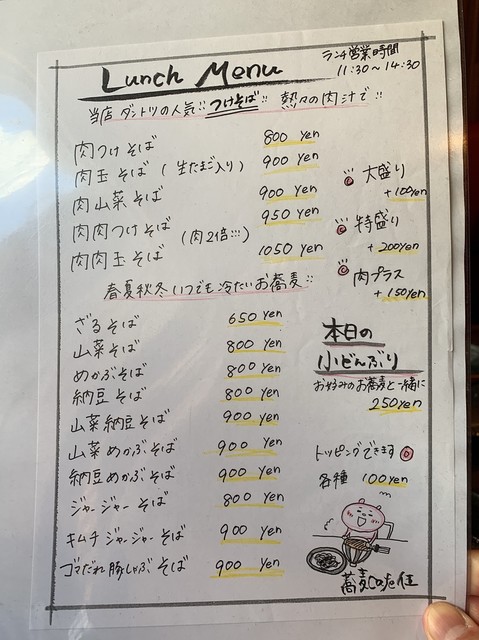 ランチ営業時間
11:30~14:30
Lunch Menu
当店ダントツの人気!! つけそば!! 熱々の肉汁で!!
肉つけそば 800 yen
肉玉そば (生たまご入り) 900 yen
肉山菜そば 900 yen
肉肉つけそば 950 yen
(肉2倍!!!)
肉肉玉そば 1050 yen
大盛り
+100yen
特盛り
+200yen
肉プラス
+150yen
春夏秋冬いつでも冷たいお蕎麦!!
ざるそば 650 yen
山菜そば 800 yen
めかぶそば 800 yen
納豆そば 800 yen
山菜納豆そば 900 yen
山菜めかぶそば 900 yen
納豆めかぶそば 900 yen
ジャージャーそば 800 yen
キムチジャージャーそば 900 yen
ゴマだれ豚しゃぶそば 900 yen
本日の
小どんぶり
お好みのお蕎麦と一緒に
250yen
トッピングできます
各種 100yen
蕎麦